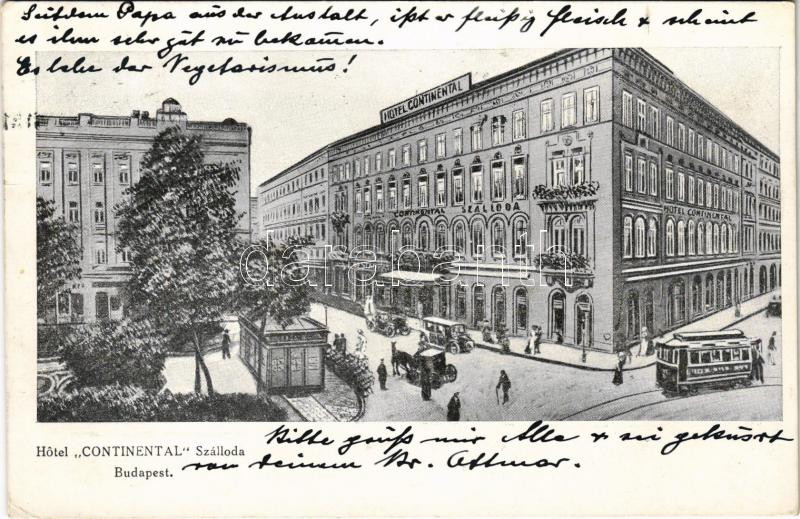 Seitdem Papa aus der Anstalt, ißt er fleißig Fleisch & scheint
es ihm sehr gut zu bekommen.
Es lebe der Vegetarismus!
HOTEL CONTINENTAL
CONTINENTAL SZÁLLODA
HOTEL CONTINENTAL
darabanth
Hôtel „CONTINENTAL“ Szálloda
Budapest.
Bitte grüß mir Alle & sei geküsst
von deinem Br. Ottmar.